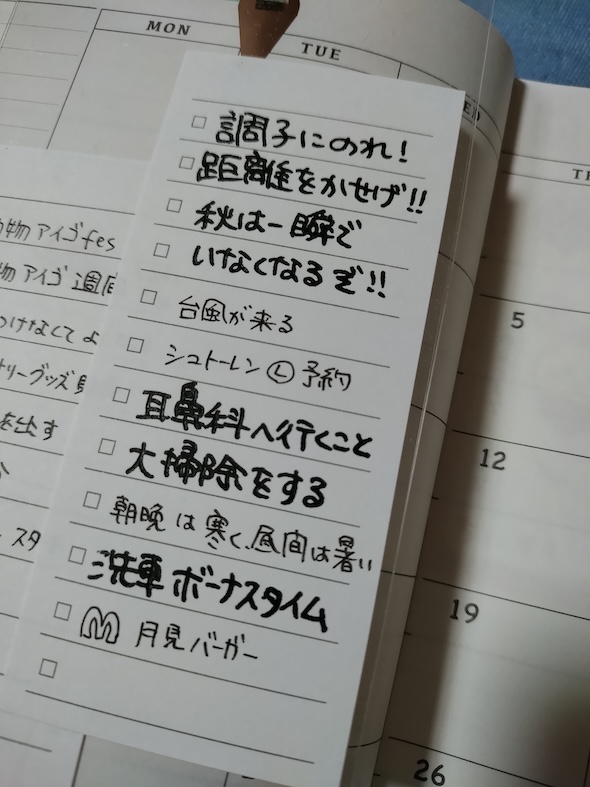 MON
TUE
訓子にのれ!
距離をかせげ!!
秋は一瞬で
いなくなるぞ!!
台風が来る
シュトーレン Ⓛ 予約
耳鼻科へ行くこと
大掃除をする
朝晩は寒く、昼間は暑い
洗車 ボーナスタイム
M 月見バーガー
物 アイゴ fes
物 アイゴ 週
つけなくてよ
リーグッズ
を出す
スタ
5
12
19
26